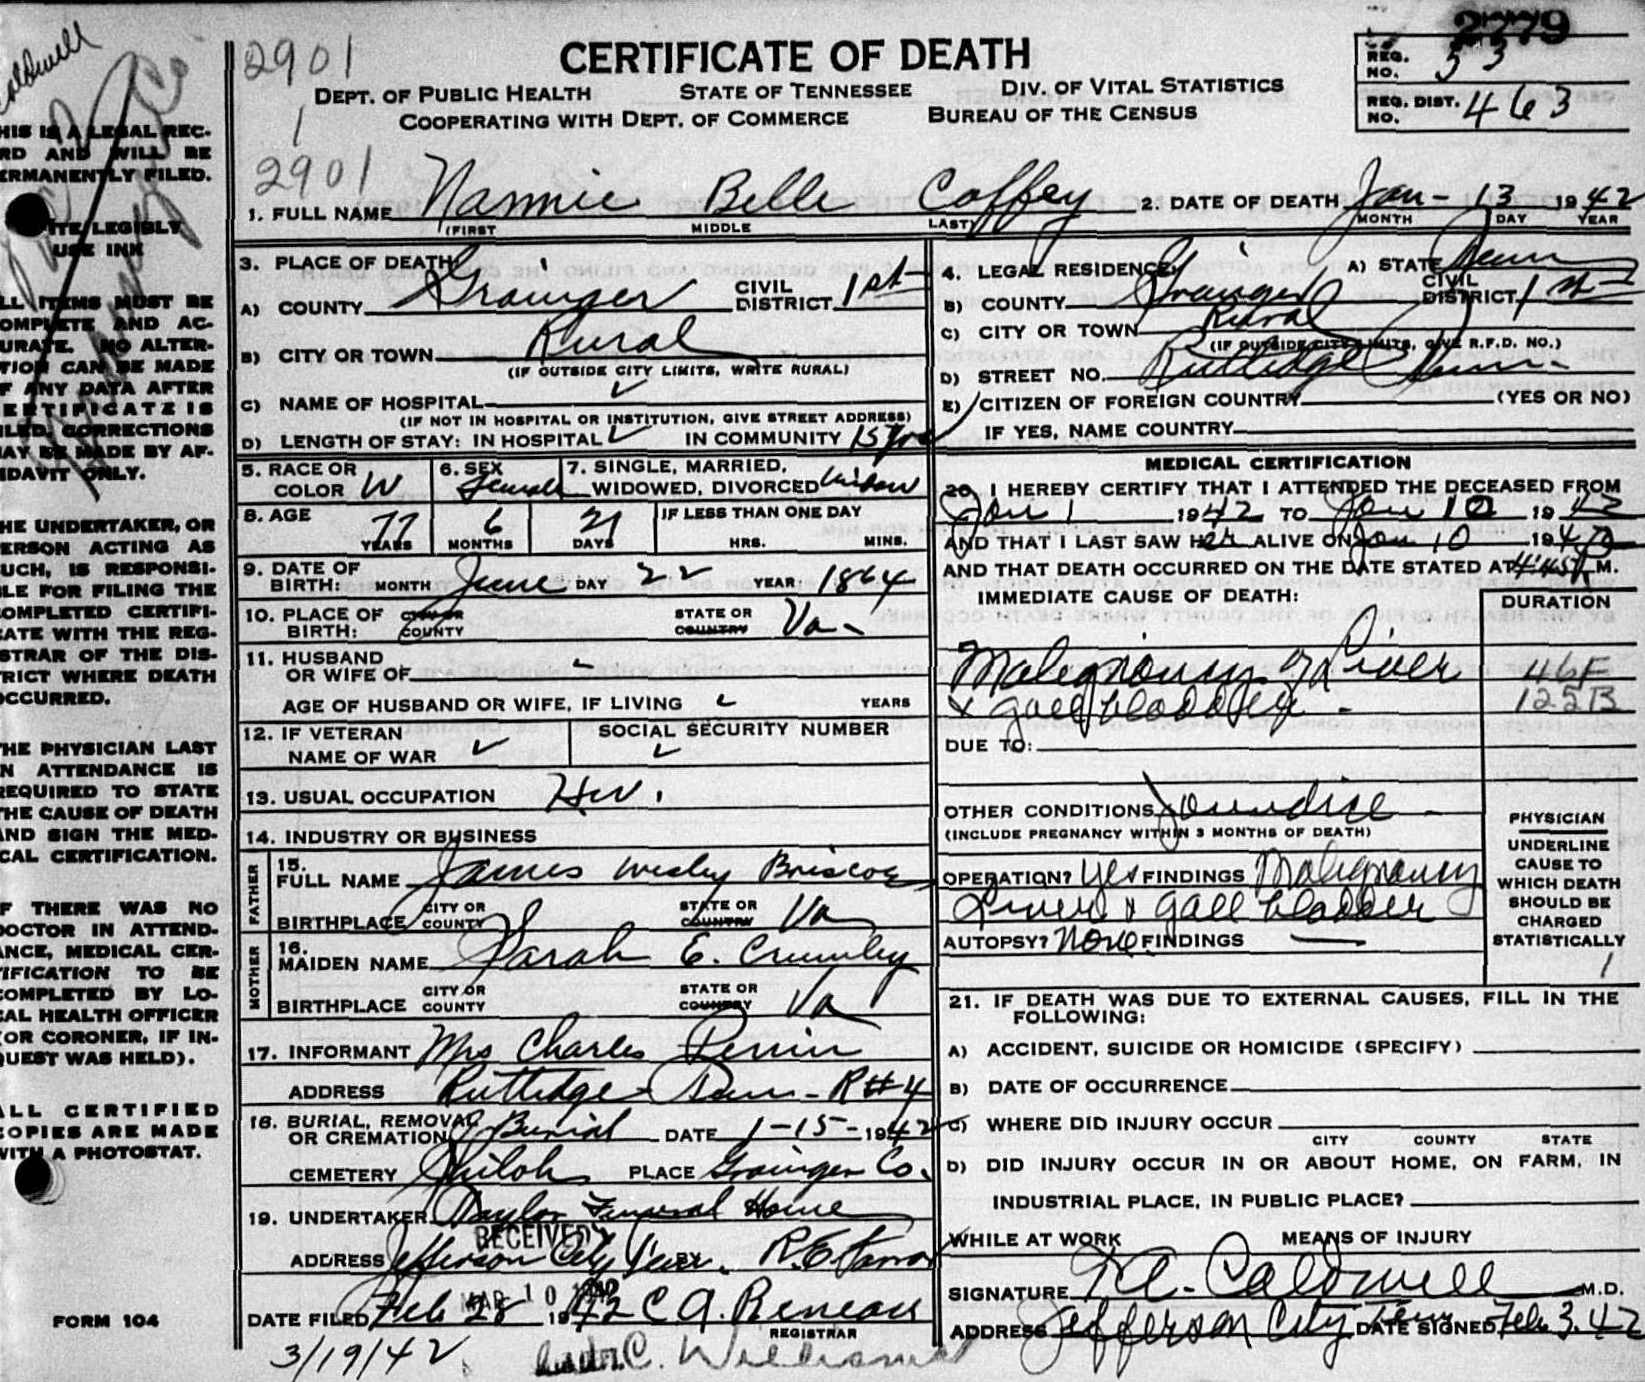 2779
2901
CERTIFICATE OF DEATH
REG. NO. 53
DEPT. OF PUBLIC HEALTH STATE OF TENNESSEE DIV. OF VITAL STATISTICS
REG. DIST. NO. 463
1 COOPERATING WITH DEPT. OF COMMERCE BUREAU OF THE CENSUS
2901
Caldwell
1. FULL NAME Nannie Belle Coffey 2. DATE OF DEATH Jan- 13 1942
(FIRST MIDDLE LAST) MONTH DAY YEAR
3. PLACE OF DEATH:
A) COUNTY Grainger CIVIL DISTRICT 1st
B) CITY OR TOWN Rural
(IF OUTSIDE CITY LIMITS, WRITE RURAL)
C) NAME OF HOSPITAL ✓
(IF NOT IN HOSPITAL OR INSTITUTION, GIVE STREET ADDRESS)
D) LENGTH OF STAY: IN HOSPITAL ✓ IN COMMUNITY 15 yrs
4. LEGAL RESIDENCE: A) STATE Tenn
B) COUNTY Grainger CIVIL DISTRICT 1st
C) CITY OR TOWN Rural
(IF OUTSIDE CITY LIMITS, GIVE R.F.D. NO.)
D) STREET NO. Rutledge Tenn-
E) CITIZEN OF FOREIGN COUNTRY (YES OR NO)
IF YES, NAME COUNTRY
5. RACE OR COLOR W 6. SEX Female 7. SINGLE, MARRIED, WIDOWED, DIVORCED Widow
8. AGE 77 6 21 IF LESS THAN ONE DAY
YEARS MONTHS DAYS HRS. MINS.
9. DATE OF BIRTH: MONTH June DAY 22 YEAR 1864
10. PLACE OF BIRTH: CITY OR COUNTY STATE OR COUNTRY Va-
11. HUSBAND OR WIFE OF
AGE OF HUSBAND OR WIFE, IF LIVING YEARS
12. IF VETERAN NAME OF WAR ✓ SOCIAL SECURITY NUMBER ✓
13. USUAL OCCUPATION H.W.
14. INDUSTRY OR BUSINESS
FATHER
15. FULL NAME James Wesley Briscoe
BIRTHPLACE CITY OR COUNTY STATE OR COUNTRY Va
MOTHER
16. MAIDEN NAME Sarah E. Crumley
BIRTHPLACE CITY OR COUNTY STATE OR COUNTRY Va
17. INFORMANT Mrs Charles
ADDRESS Rutledge Tenn- R#4
18. BURIAL, REMOVAL OR CREMATION Burial DATE 1-15-1942
CEMETERY Shiloh PLACE Grainger Co.
19. UNDERTAKER Funeral Home
RECEIVED
ADDRESS Jefferson City Tenn. BY R.E.
MAR 10 1942
DATE FILED Feb 28 1942 C A.
REGISTRAR
3/19/42 C. Williams
MEDICAL CERTIFICATION
20. I HEREBY CERTIFY THAT I ATTENDED THE DECEASED FROM
Jan 1 1942 TO Jan 10 1942
AND THAT I LAST SAW Her ALIVE ON Jan 10 1942
AND THAT DEATH OCCURRED ON THE DATE STATED AT 4:45 M.
IMMEDIATE CAUSE OF DEATH: DURATION
Malignancy of Liver 46F
& gall bladder - 125B
DUE TO:
OTHER CONDITIONS Jaundice
(INCLUDE PREGNANCY WITHIN 3 MONTHS OF DEATH)
OPERATION? yes FINDINGS Malignancy
Liver & gall bladder
AUTOPSY? None FINDINGS
PHYSICIAN
UNDERLINE
CAUSE TO
WHICH DEATH
SHOULD BE
CHARGED
STATISTICALLY
1
21. IF DEATH WAS DUE TO EXTERNAL CAUSES, FILL IN THE
FOLLOWING:
A) ACCIDENT, SUICIDE OR HOMICIDE (SPECIFY)
B) DATE OF OCCURRENCE
C) WHERE DID INJURY OCCUR
CITY COUNTY STATE
D) DID INJURY OCCUR IN OR ABOUT HOME, ON FARM, IN
INDUSTRIAL PLACE, IN PUBLIC PLACE?
WHILE AT WORK MEANS OF INJURY
SIGNATURE Caldwell M.D.
ADDRESS Jefferson City Tenn DATE SIGNED Feb 3. 42
HIS IS A LEGAL REC-
RD AND WILL BE
ERMANENTLY FILED.
ITE LEGIBLY
USE INK
LL ITEMS MUST BE
OMPLETE AND AC-
URATE. NO ALTER-
TION CAN BE MADE
F ANY DATA AFTER
ERTIFICATE IS
ILED. CORRECTIONS
AY BE MADE BY AF-
IDAVIT ONLY.
HE UNDERTAKER, OR
ERSON ACTING AS
UCH, IS RESPONSI-
LE FOR FILING THE
OMPLETED CERTIFI-
CATE WITH THE REG-
STRAR OF THE DIS-
RICT WHERE DEATH
OCCURRED.
HE PHYSICIAN LAST
N ATTENDANCE IS
REQUIRED TO STATE
THE CAUSE OF DEATH
AND SIGN THE MED-
CAL CERTIFICATION.
F THERE WAS NO
DOCTOR IN ATTEND-
ANCE, MEDICAL CER-
TIFICATION TO BE
COMPLETED BY LO-
CAL HEALTH OFFICER
(OR CORONER, IF IN-
QUEST WAS HELD).
ALL CERTIFIED
COPIES ARE MADE
WITH A PHOTOSTAT.
FORM 104